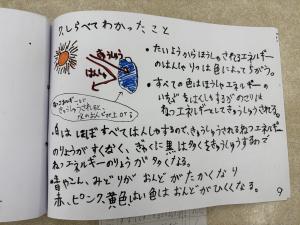 7. しらべてわかったこと
きゅうしゅう
はんしゃ
ねつエネルギーが
きゅうしゅうされると、
水のおんどが上がる
・たいようからほうしゃされるエネルギー
のはんしゃりつは色によってちがう。
・すべての色はほうしゃエネルギー
ねつエネルギーとしてきゅうしゅうされる。
白はほぼすべてはんしゃするので、きゅうしゅうされるねつエネルギー
のりょうがすくなく、ぎゃくに黒は多くをきゅうしゅうするので
ねつエネルギーのりょうが多くなる。
青やこん、みどりがおんどがたかくなり
赤、ピンク、黄色はい色はおんどがひくくなる。
9